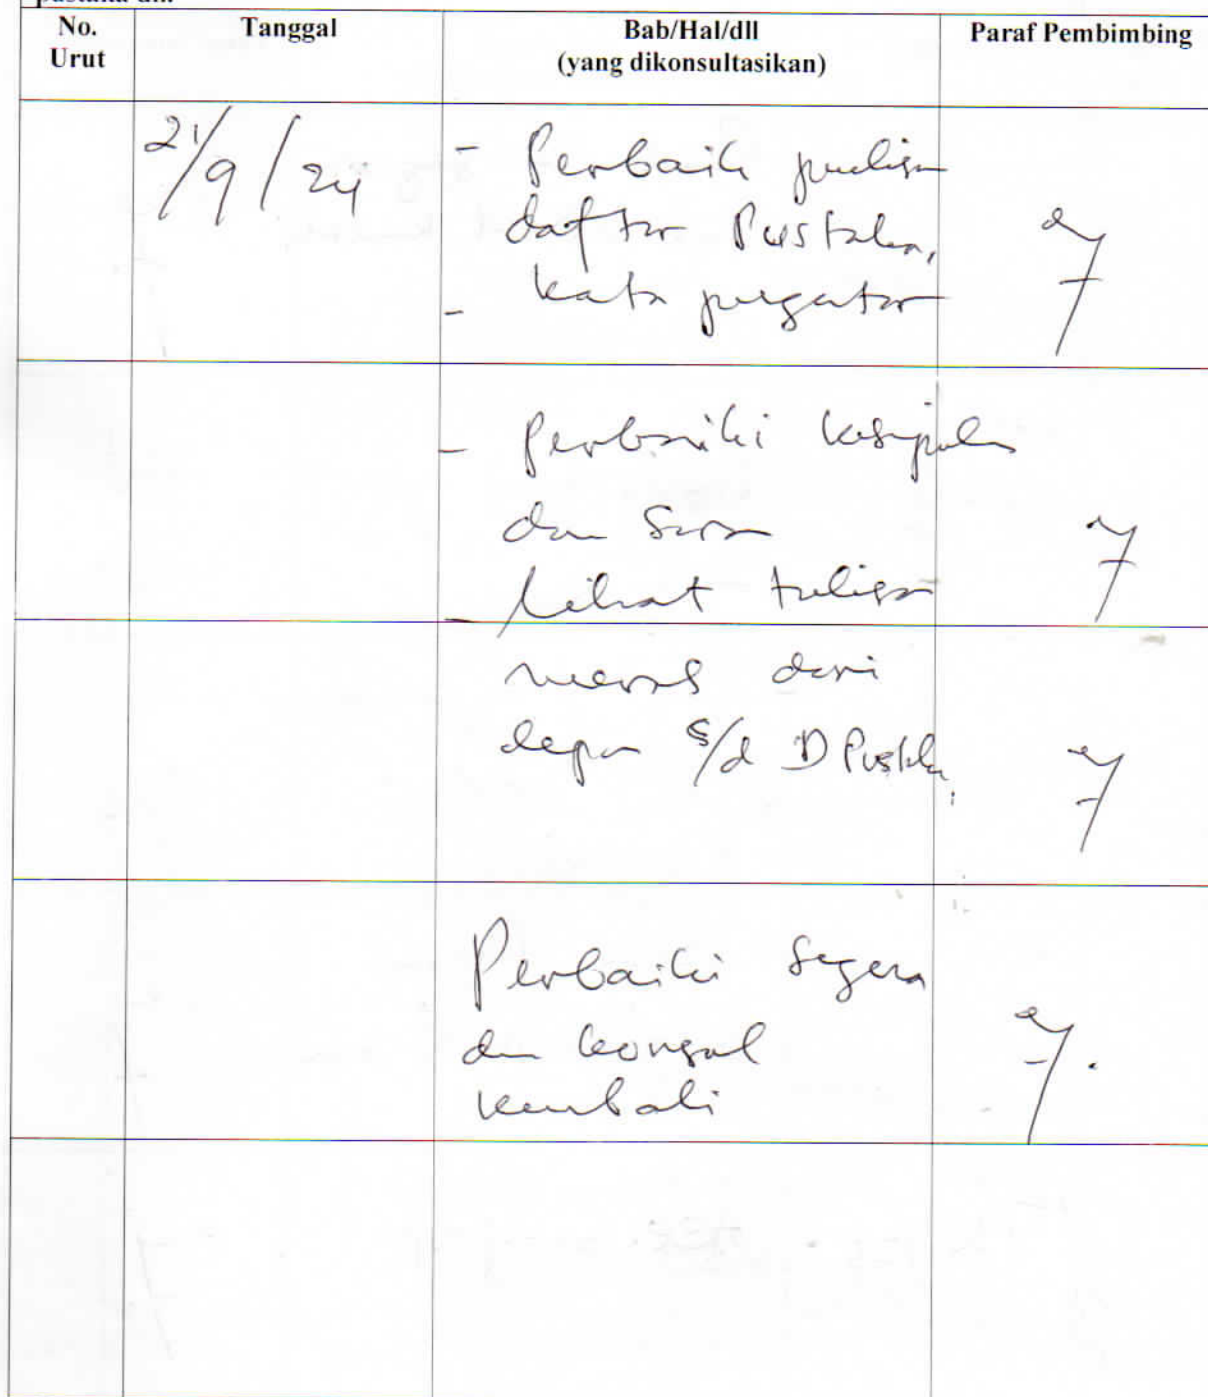 No. Urut
Tanggal
Bab/Hal/dll
(yang dikonsultasikan)
Paraf Pembimbing
21/9/24
- Perbaiki penulisan
daftar Pustaka,
- kata pengantar
- Perbaiki kesimpulan
dan Saran
- Lihat tulisan
merah dari
depan s/d D Pustaka
Perbaiki segera
dan konsul
kembali